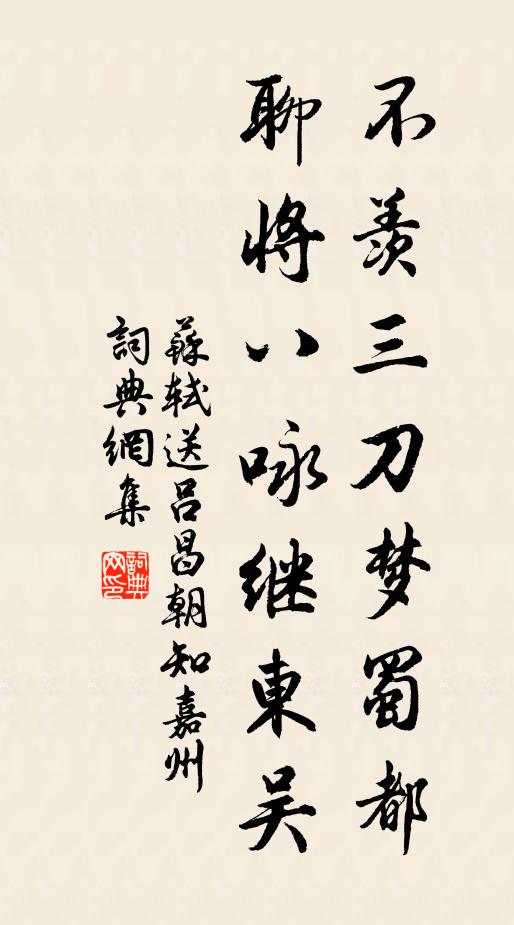 不羨三刀梦蜀都
聊將八咏继東吴
蘇軾送呂昌朝知嘉州
詞典網集
詞典网印